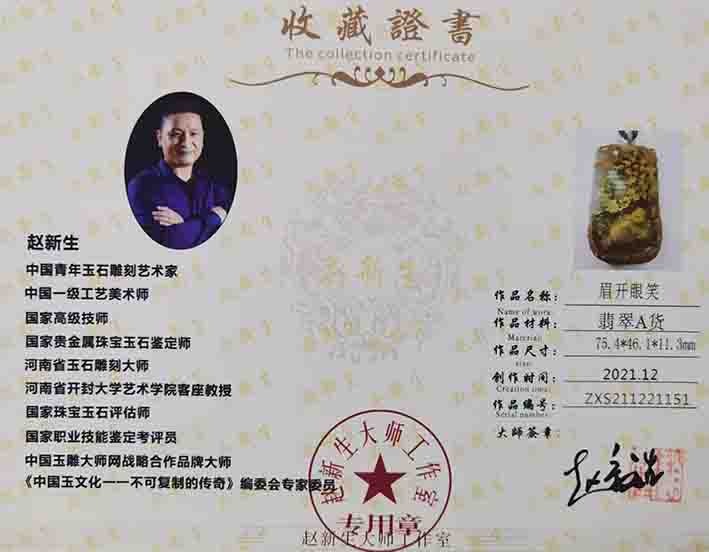 收藏證書
The collection certificate
赵新生
中国青年玉石雕刻艺术家
中国一级工艺美术师
国家高级技师
国家贵金属珠宝玉石鉴定师
河南省玉石雕刻大师
河南省开封大学艺术学院客座教授
国家珠宝玉石评估师
国家职业技能鉴定考评员
中国玉雕大师网战略合作品牌大师
《中国玉文化一一不可复制的传奇》编委会专家委员
作品名称： 眉开眼笑
Name of work
作品材料： 翡翠A货
Material
作品尺寸： 75.4*46.1*11.3mm
size
创作时间： 2021.12
Creation time
作品编号： ZXS211221151
Serial number
大师签章：
赵新生
赵新生大师工作室
专用章
赵新生大师工作室